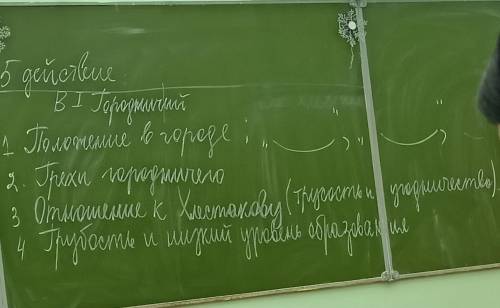 5 действие
В I Городничий
1 Положение в городе ; „ " , „ " ,
2. Грехи городничего
3 Отношение к Хлестакову (трусость и угодничество)
4 Грубость и низкий уровень образования